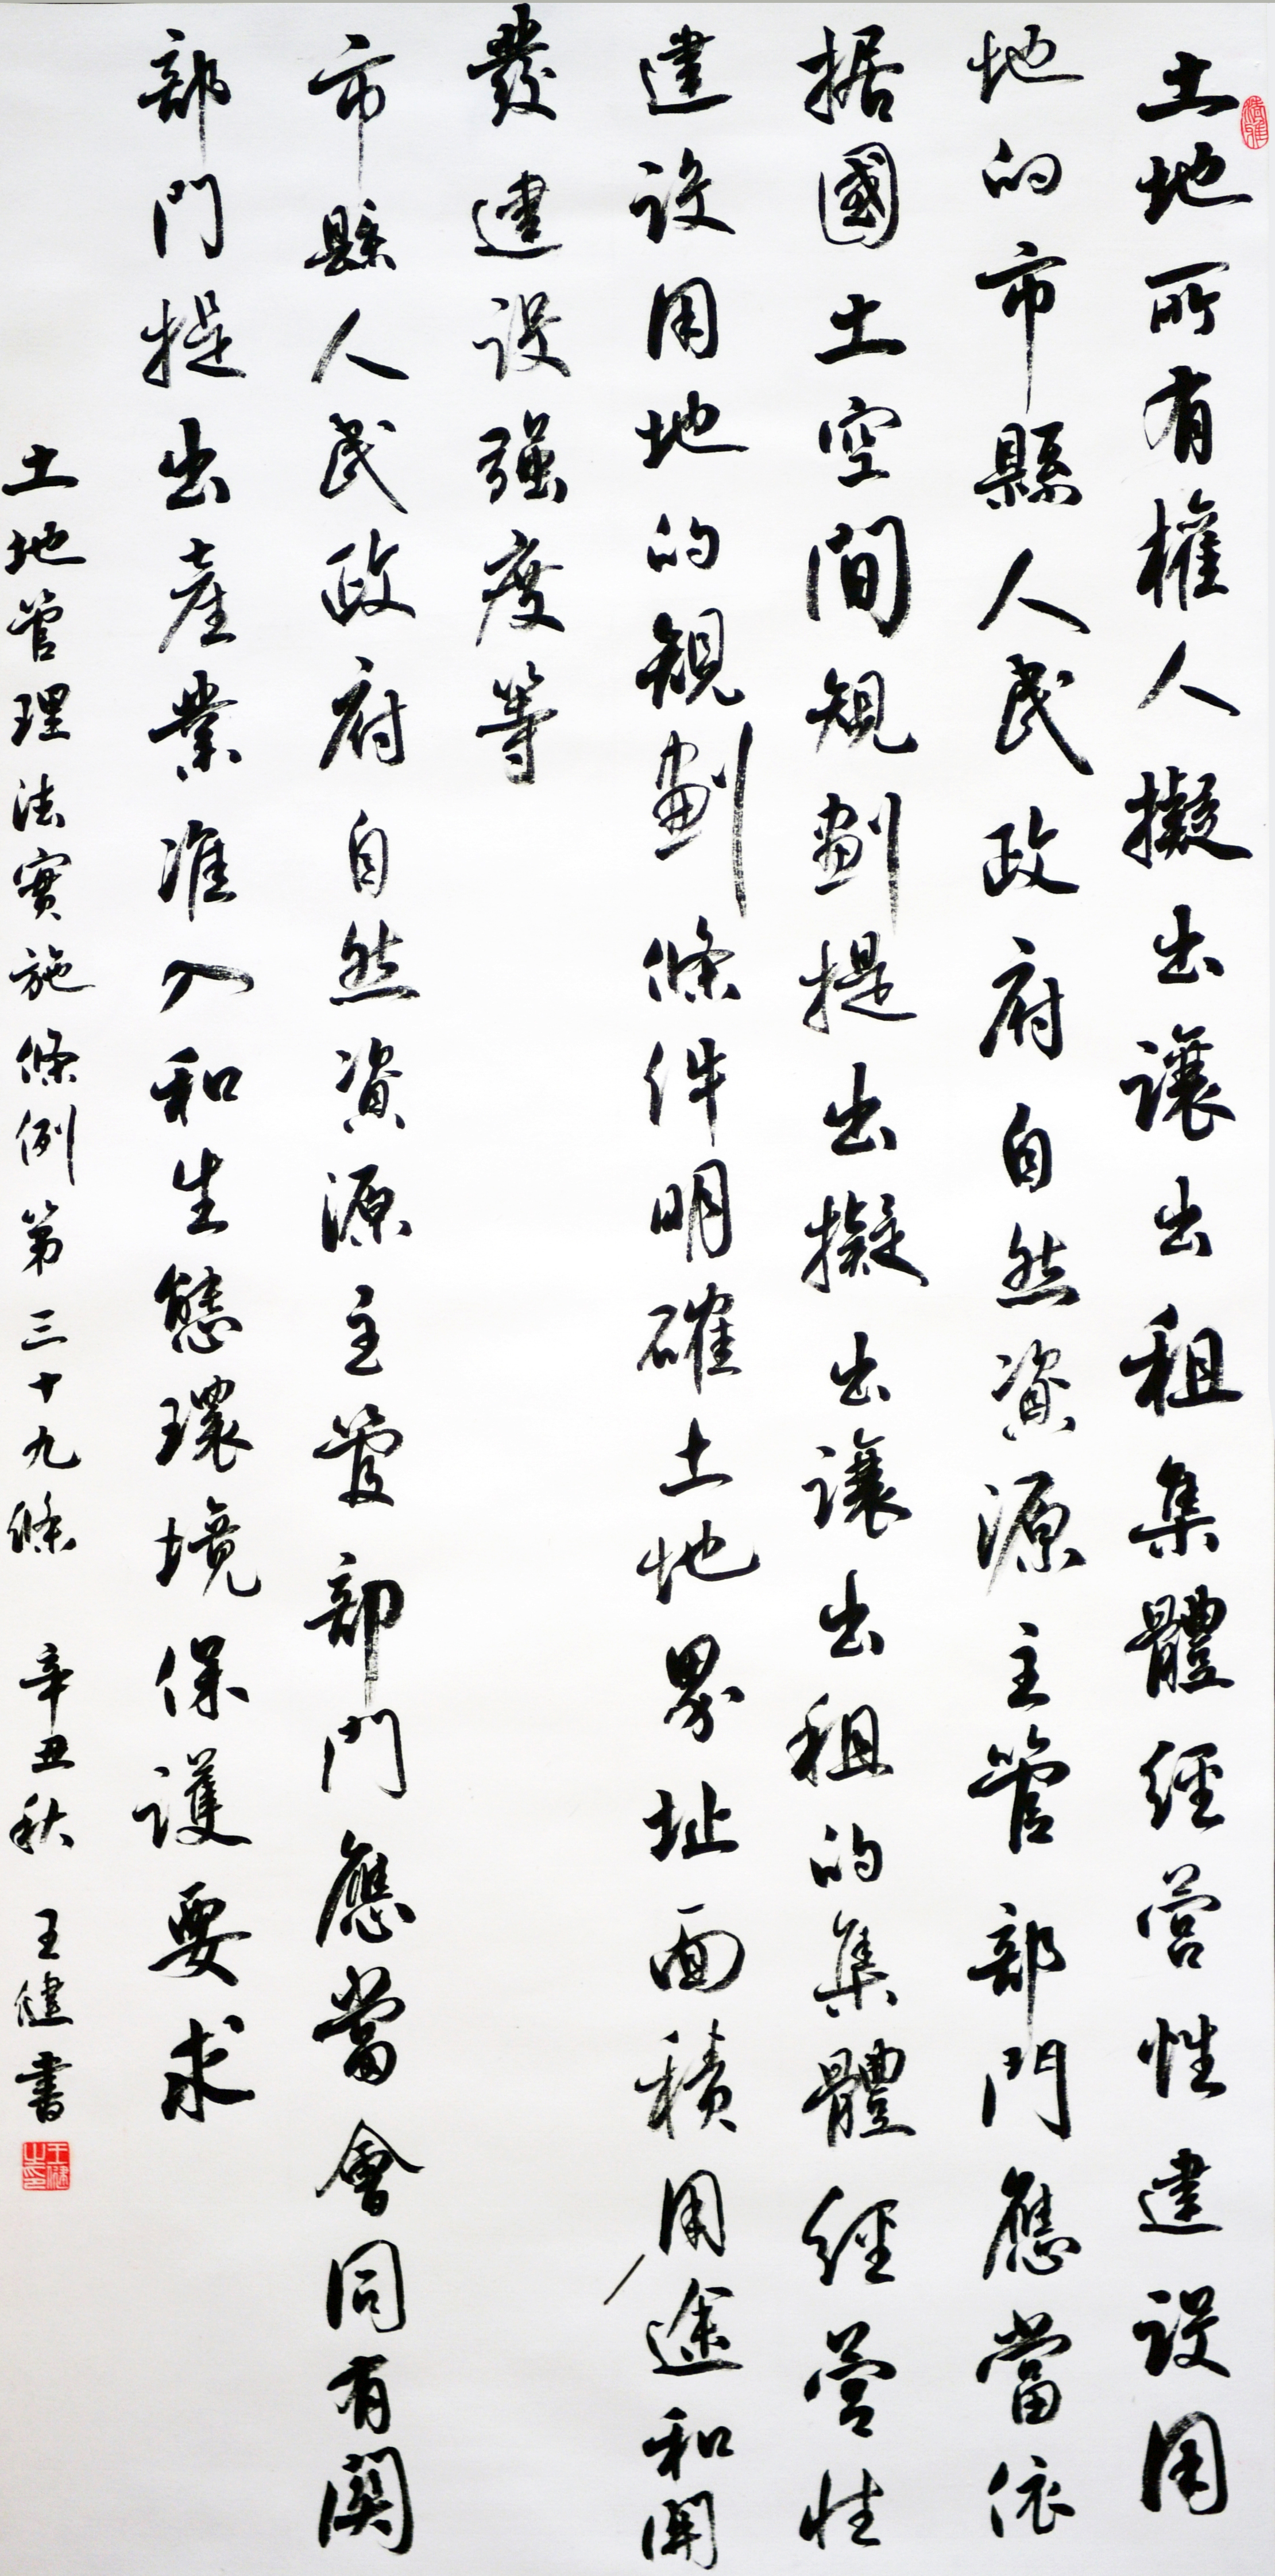 土地所有權人擬出讓出租集體經营性建設用
地的市縣人民政府自然資源主管部門應當依
据國土空間規劃提出擬出讓出租的集體經营性
建設用地的規劃條件明確土地界址面積用途和開
發建設强度等
市縣人民政府自然資源主管部門應當會同有関
部門提出產業准入和生態環境保護要求
土地管理法實施條例第三十九條 辛丑秋 王健書
王健之印